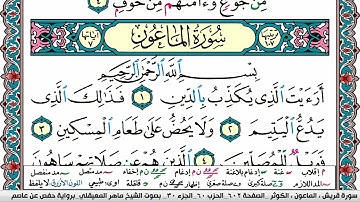 مِّن جُوعٍ وَءَامَنَهُم مِّنْ خَوْفٍ ٤
سُورَةُ المَاعُون
بِسْمِ اللَّهِ الرَّحْمَٰنِ الرَّحِيمِ
أَرَءَيْتَ الَّذِي يُكَذِّبُ بِالدِّينِ ١ فَذَٰلِكَ الَّذِي
يَدُعُّ الْيَتِيمَ ٢ وَلَا يَحُضُّ عَلَىٰ طَعَامِ الْمِسْكِينِ ٣
فَوَيْلٌ لِّلْمُصَلِّينَ ٤ الَّذِينَ هُمْ عَن صَلَاتِهِمْ سَاهُونَ
سورة قريش , الماعون , الكوثر , الصفحة ٦٠٢ , الحزب ٦٠ , الجزء ٣٠ , بصوت الشيخ ماهر المعيقلي , برواية حفص عن عاصم